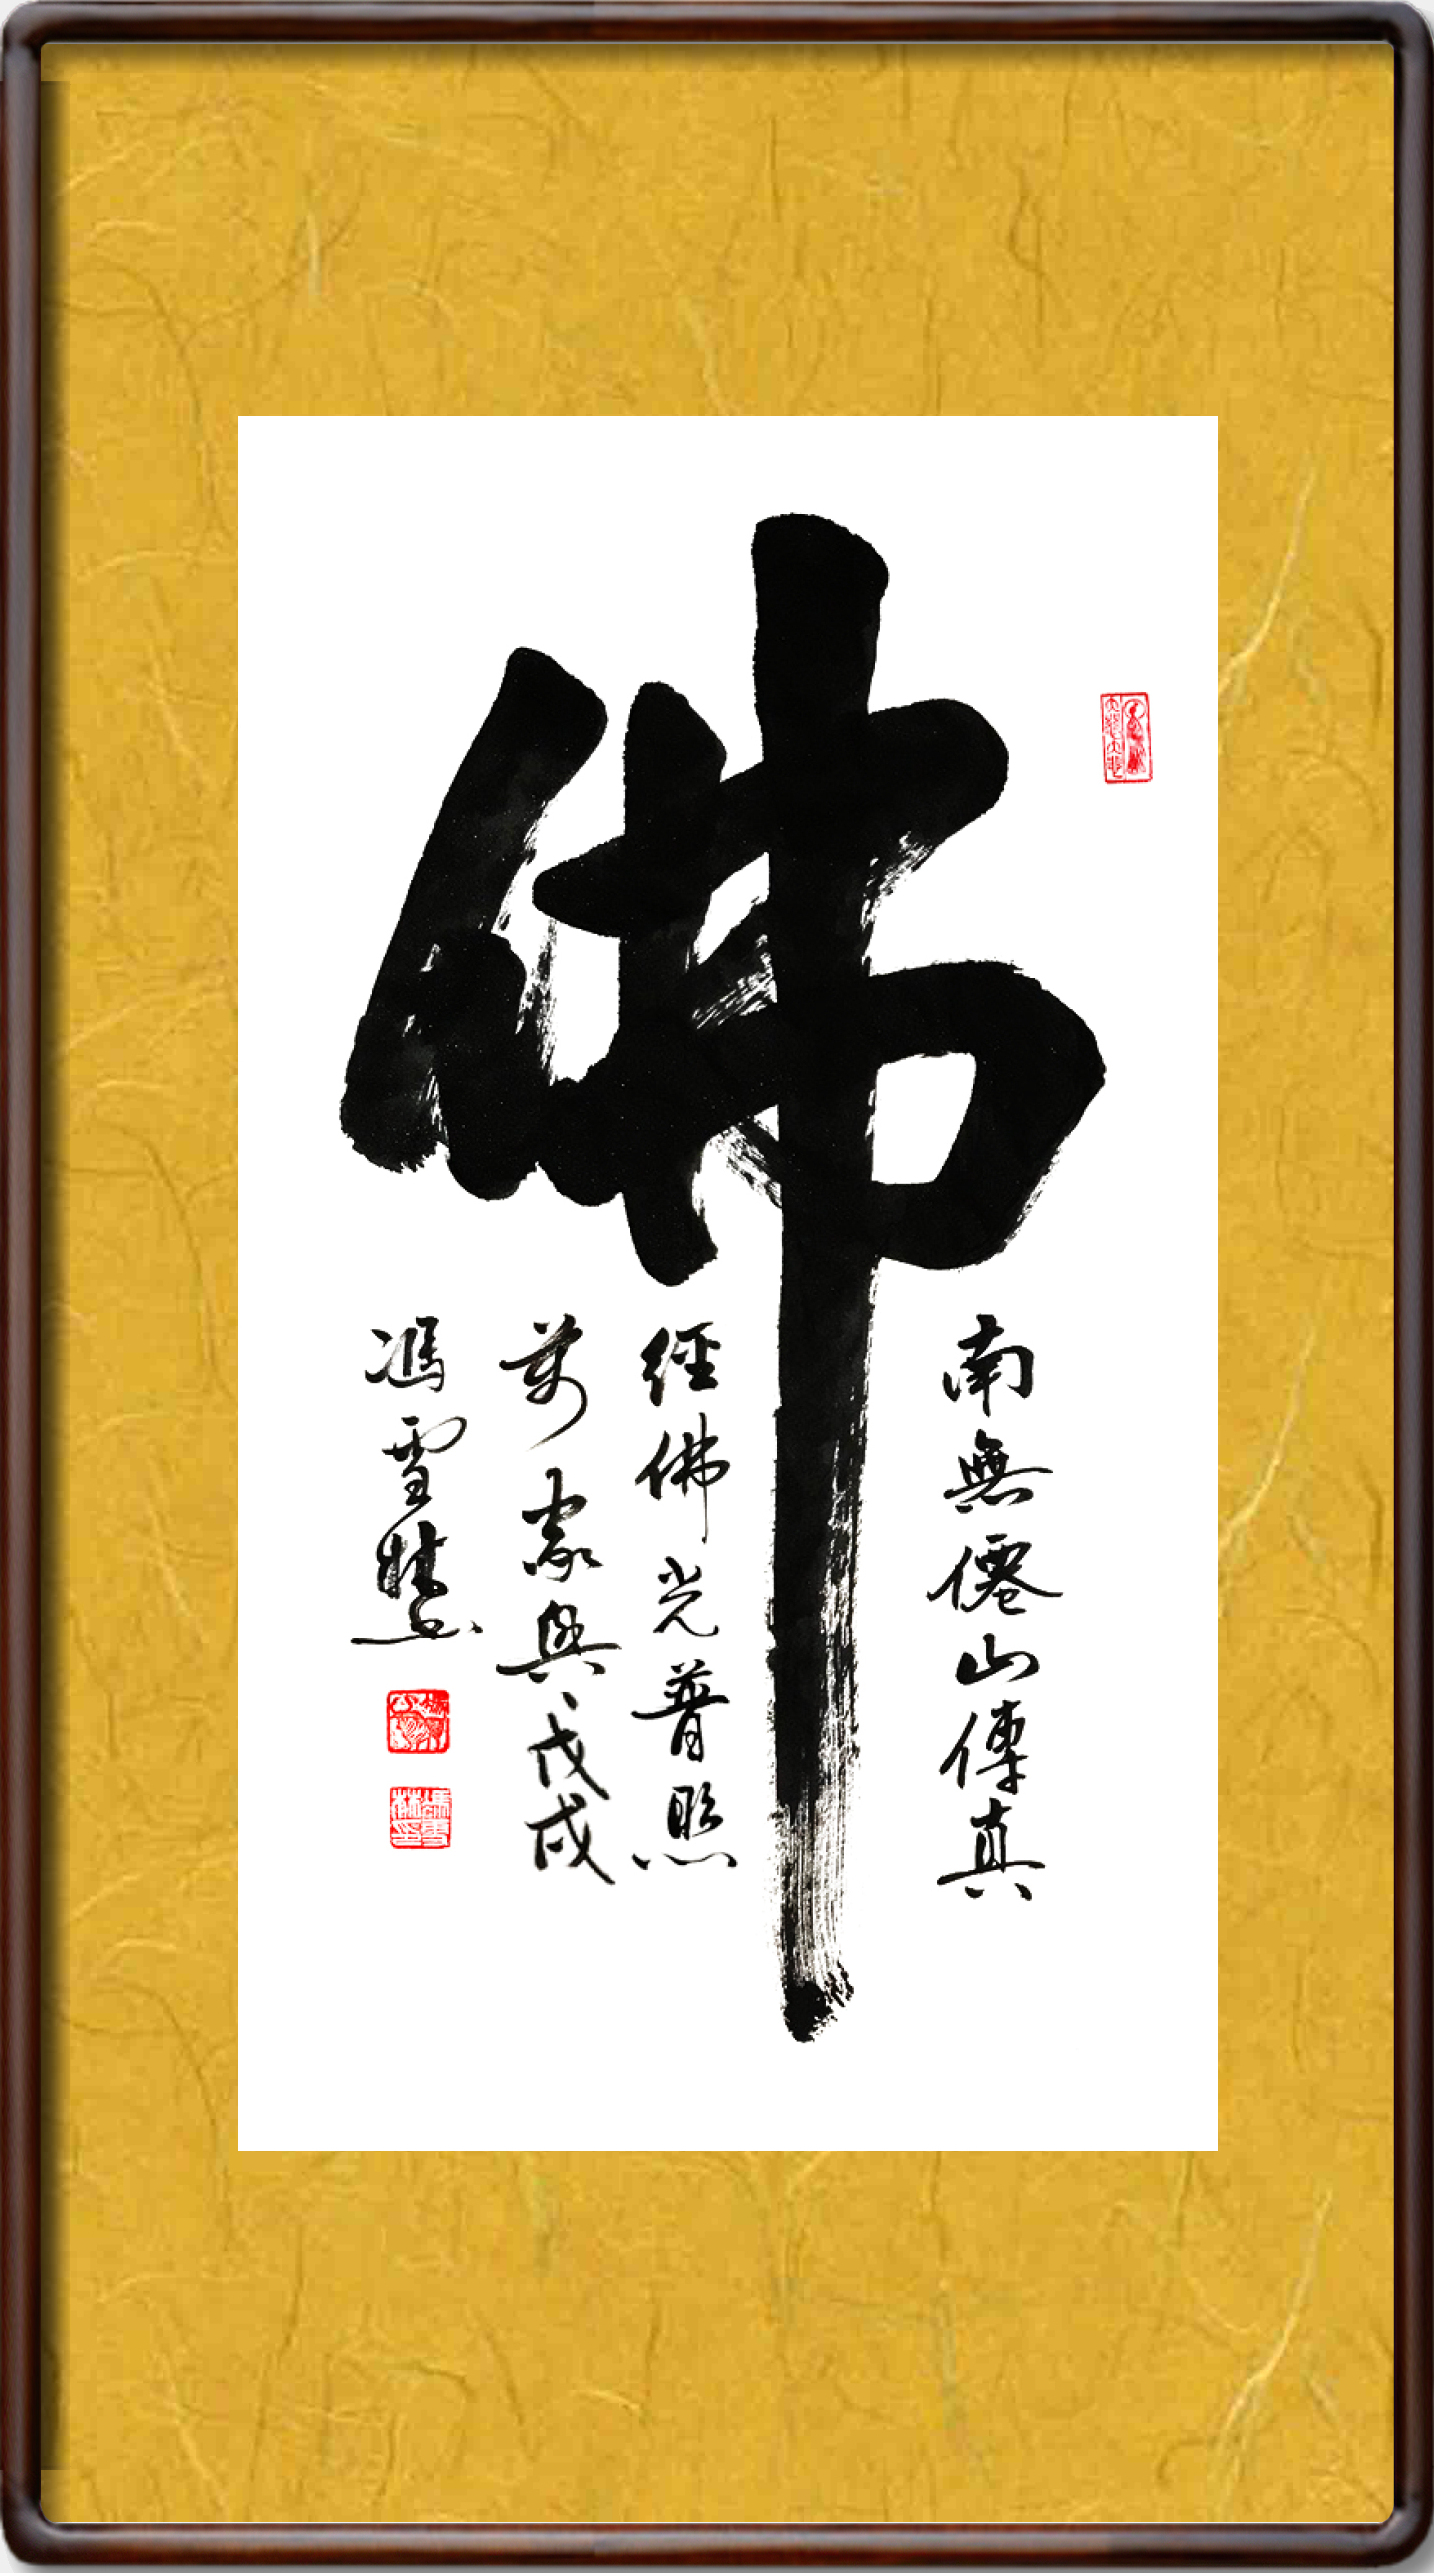 佛
南無僊山傳真
經佛光普照
萬家興戊戌
馮雪林